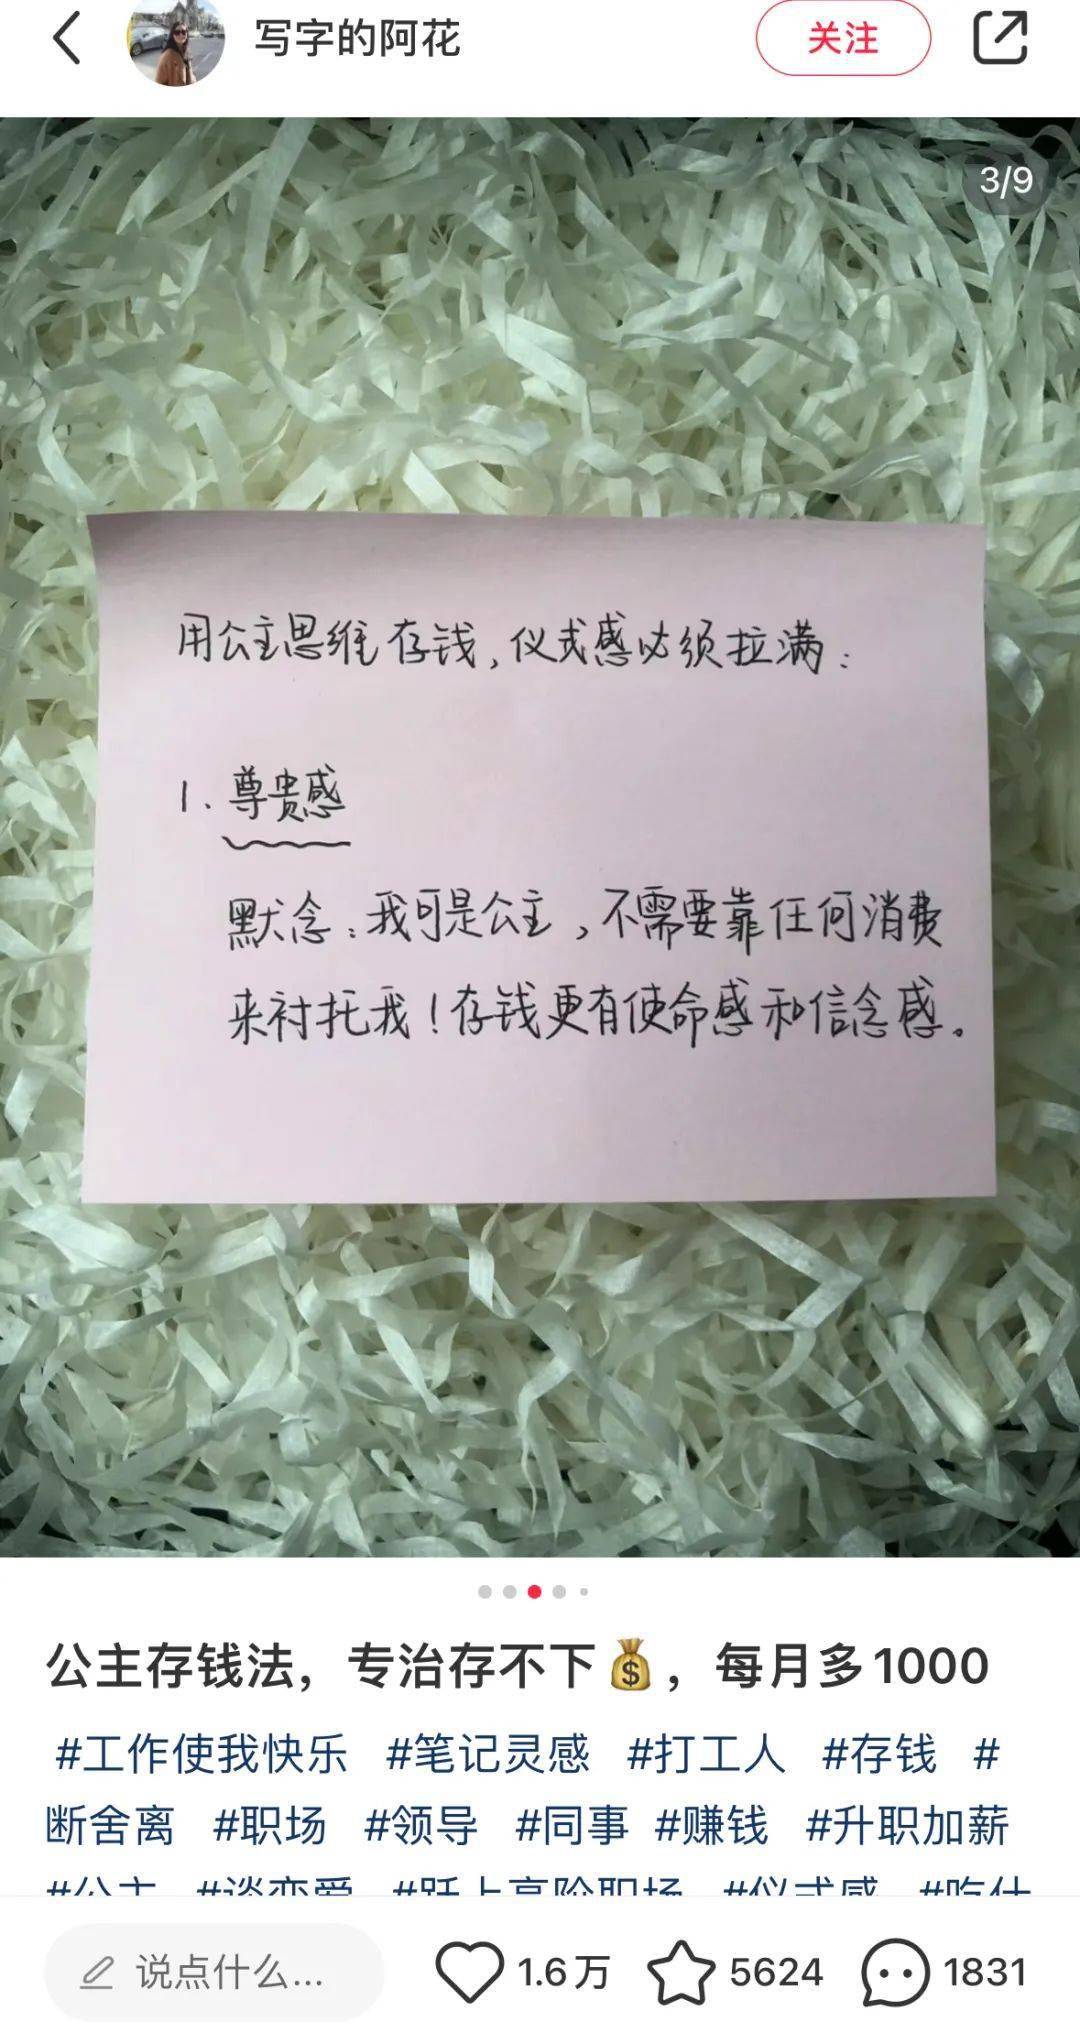 写字的阿花
关注
3/9
用公主思维存钱,仪式感必须拉满:
1.尊贵感
默念:我可是公主,不需要靠任何消费
来衬托我!存钱更有使命感和信念感。
公主存钱法，专治存不下💰，每月多1000
#工作使我快乐 #笔记灵感 #打工人 #存钱 #
断舍离 #职场 #领导 #同事 #赚钱 #升职加薪
#公主 #谈恋爱 #跃上高阶职场 #仪式感 #吃什
说点什么... 1.6万 5624 1831